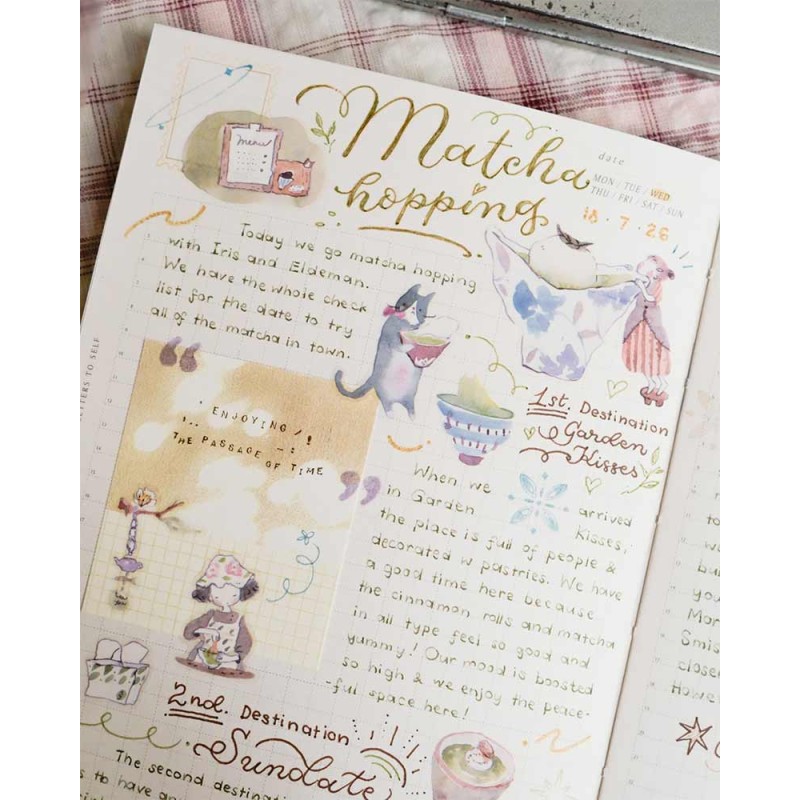 menu
Matcha
hopping
date
MON / TUE / WED
THU / FRI / SAT / SUN
18 · 7 · 26
Today we go matcha hopping
with Iris and Eldeman.
We have the whole check
list for the date to try
all of the matcha in town.
ENJOYING
THE PASSAGE OF TIME
1st. Destination
Garden
Kisses
When we arrived
in Garden Kisses,
the place is full of people &
decorated w pastries. We have
a good time here because
the cinnamon rolls and matcha
in all type feel so good and
yummy! Our mood is boosted
so high & we enjoy the peace-
-ful space here!
2nd. Destination
Sundate
The second destination
to have
TO SELF
Mor
Smis
close
Howe